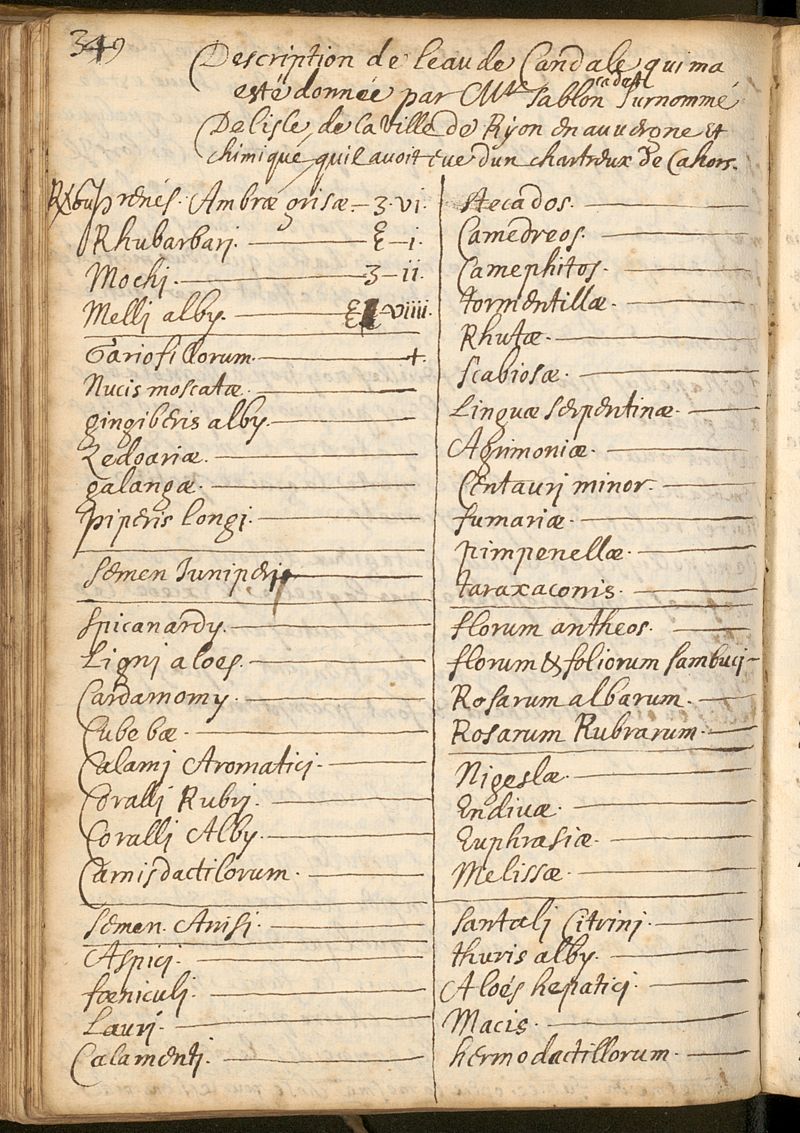 349
Description de leau de Candale qui ma
esté donnée par Mr Sablon cadet Surnommé
Delisle, de la Ville de Ryon en auuergne et
chimique, quil auoit eue dun chartreux de Cahors.
prenés. Ambræ grisæ. ʒ. vi.
Rhubarbarj. ℥ i.
Mochj. ʒ. ii.
Mellj alby. ℥ viiii.
Gariofillorum. +.
Nucis moscatæ.
gingiberis alby.
Zedoariæ.
galangæ.
piperis longj.
Semen Juniperj
Spicanardy.
Lignj aloes.
Cardamomy.
Cubebæ.
Calamj Aromaticj.
Corallj Rubrj.
Corallj Alby.
Carnis dactilorum.
Semen. Anisj.
Aspicj.
fœniculj.
Laurj.
Calamentj.
Stecados.
Camedreos.
Camephitos.
tormentillæ.
Rhutæ.
Scabiosæ.
Linguæ serpentinæ.
Agrimoniæ.
Centaurj minor.
fumariæ.
pimpenellæ.
taraxaconis.
florum antheos.
florum & foliorum sambucj
Rosarum albarum.
Rosarum Rubrarum.
Nigeslæ.
Endiuæ.
Euphrasiæ.
Melissæ.
Santalj Citrinj.
thuris alby.
Aloés hepaticj.
Macis.
hermodactillorum.